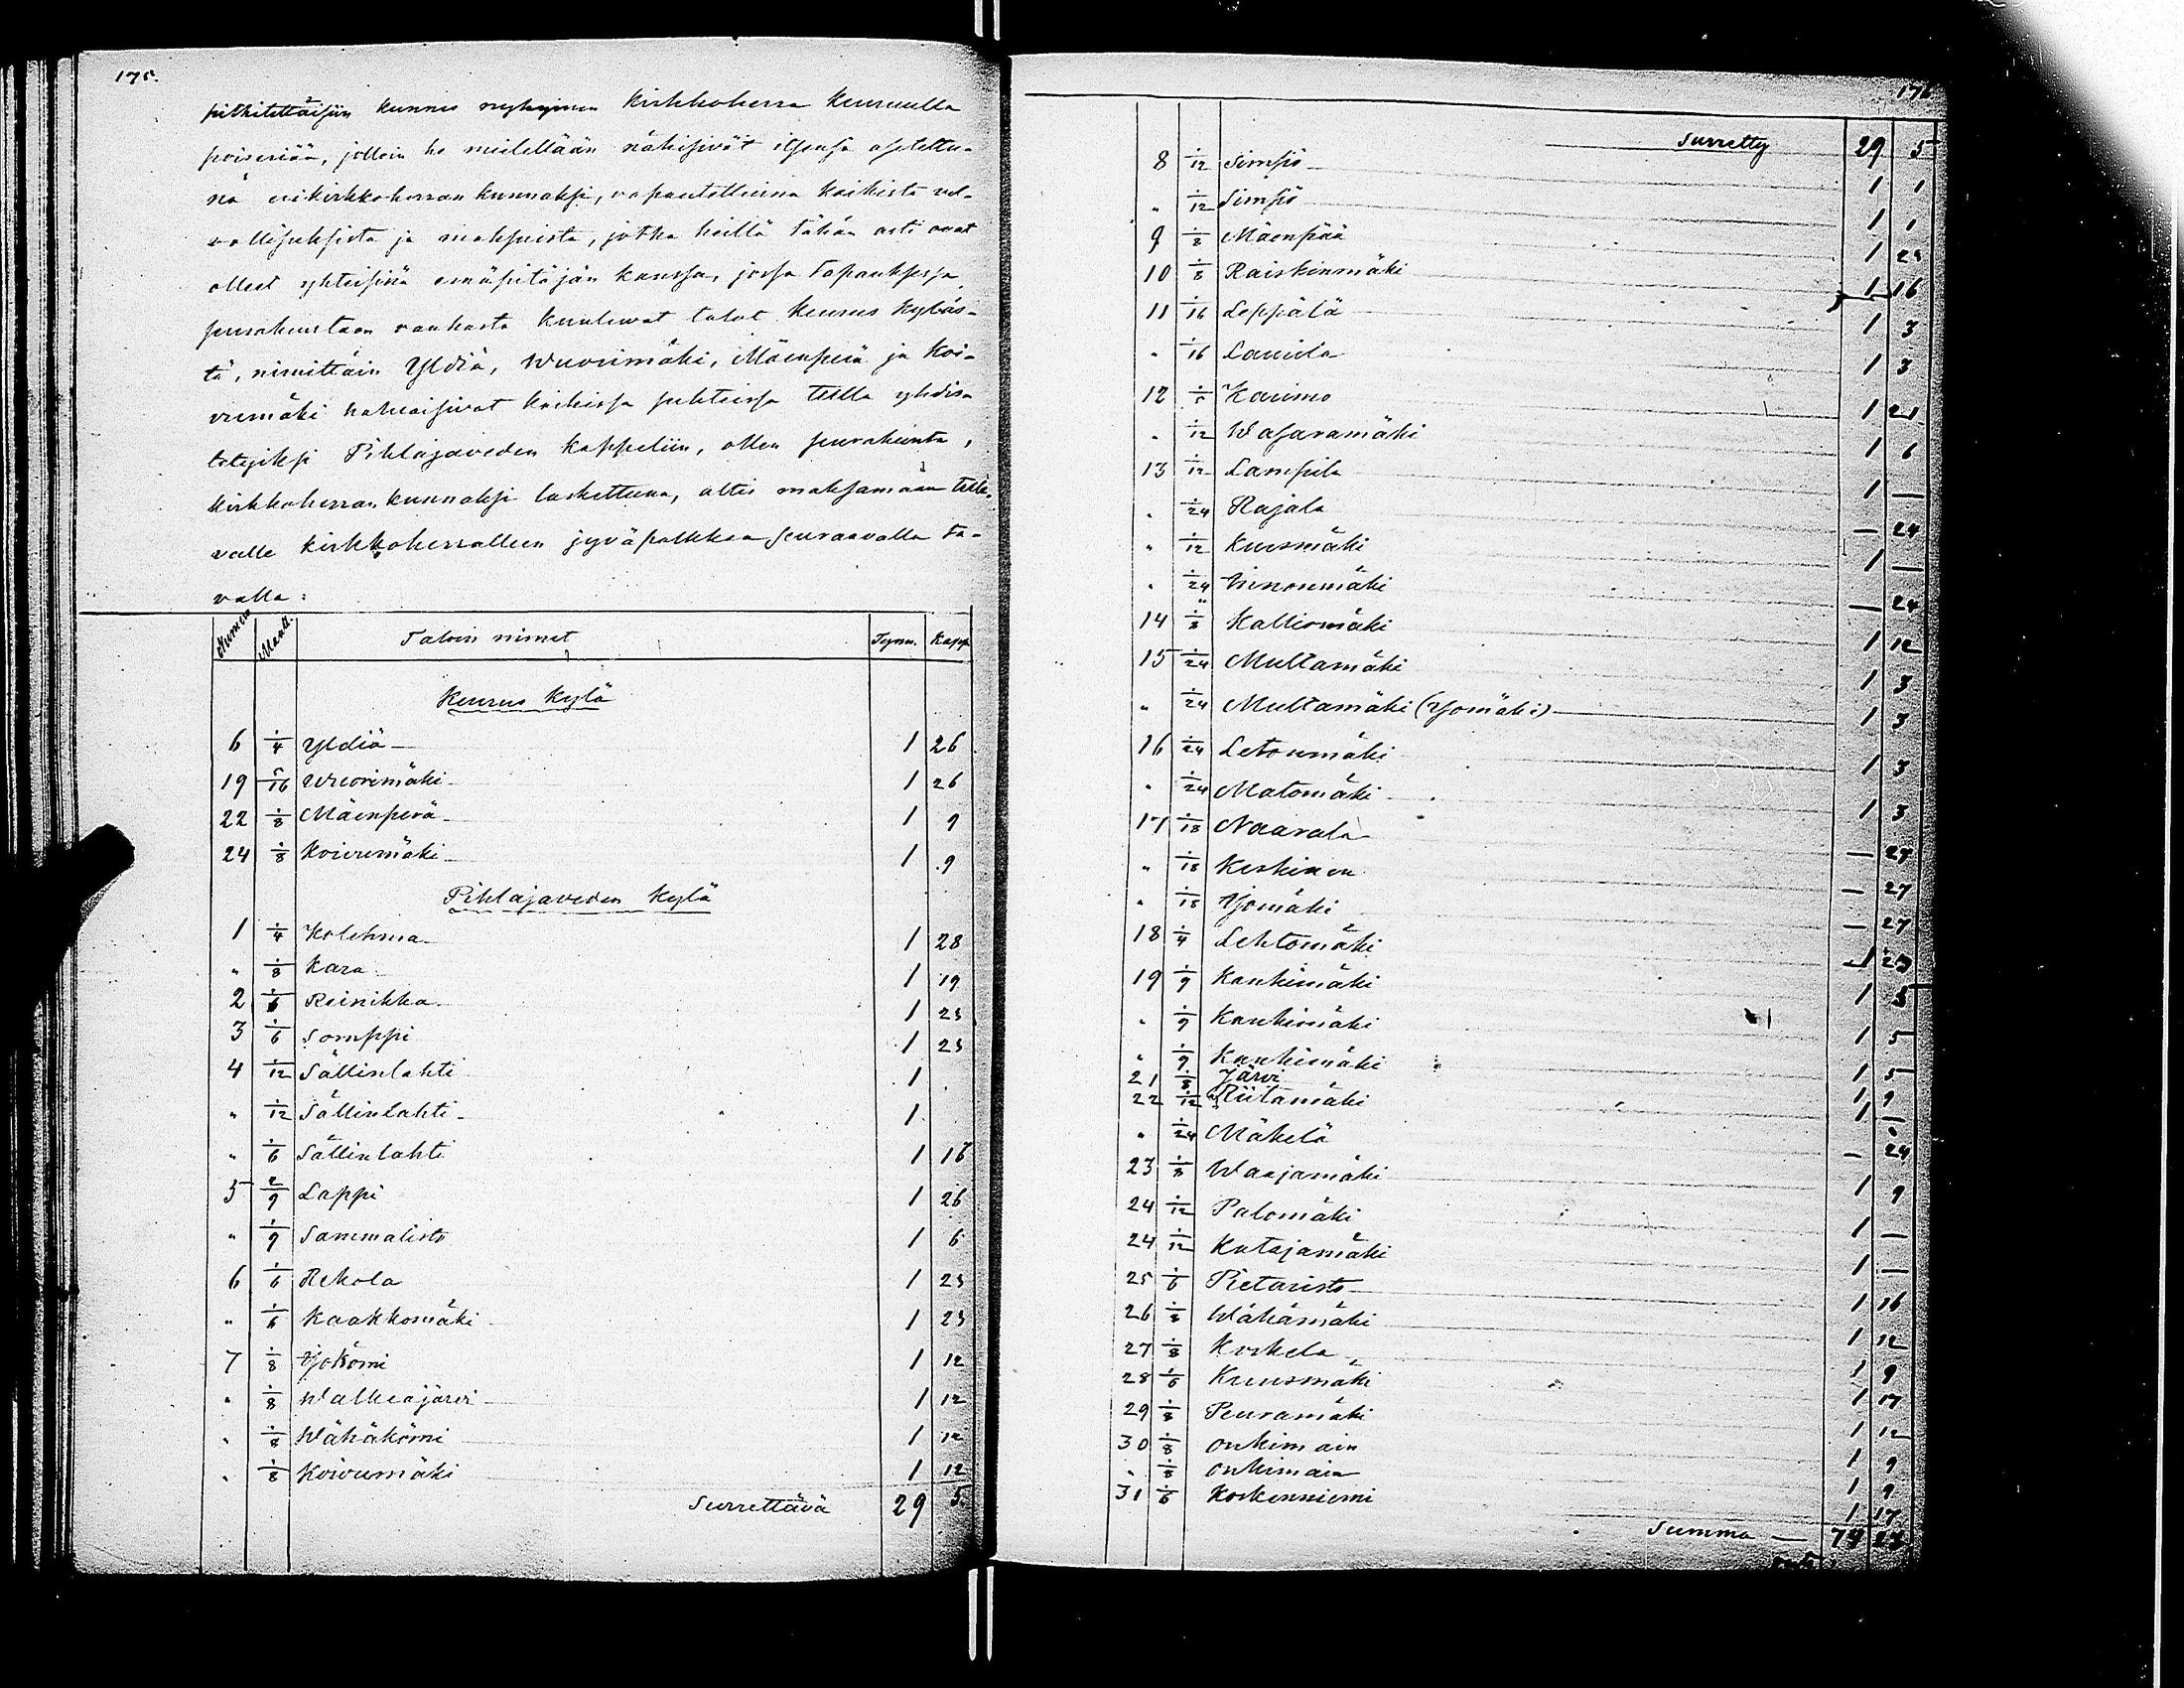 175.
pitkitettäisiin kunnes nykyinen kirkkoherra Keuruulla
poiseriää, jolloin he mielellään näkisivät itsensä asetettu-
na erikirkkoherran kunnaksi, vapautettuina kaikista vel-
vollisuksista ja maksuista, jotka heillä tähän asti ovat
olleet yhteisinä emäpitäjän kanssa, jossa tapauksessa
seurakuntaan vanhasta kuuluwat talot Keurus kyläs-
tä, nimittäin Yldiä, Wuorimäki, Mäenperä ja Koi-
vumäki haluaisivat kaikissa suhteissa tulla yhdis-
tetyiksi Pihlajaveden kappeliin, ollen seurakunta,
kirkkoherran kunnaksi laskettuna, altis maksamaan tule-
valle kirkkoherralleen jyväpalkkaa seuraavalla ta-
valla:
Numero Mantt. Taloin nimet Tynn. Kapp
Keurus kylä
6 1/4 Yldiä 1 26
19 5/16 Wuorimäki 1 26
22 1/8 Mäenperä 1 9
24 1/8 Koivumäki 1 9
Pihlajaveden kylä
1 1/4 Kolehma 1 28
" 1/8 Kara 1 19
2 1/6 Reinikka 1 23
3 1/6 Somppi 1 23
4 1/12 Sällinlahti 1
" 1/12 Sällinlahti 1
" 1/6 Sällinlahti 1 16
5 2/9 Lappi 1 26
" 1/9 Sammalisto 1 6
6 1/6 Rekola 1 23
" 1/6 Kaakkomäki 1 23
7 1/8 Yjokömi 1 12
" 1/8 Walkeajärvi 1 12
" 1/8 Wähäkömi 1 12
" 1/8 Koivumäki 1 12
Surrettävä 29 5
176
Surretty 29 5
8 1/12 Simpiö 1 1
" 1/12 Simpiö 1 1
9 1/8 Mäenpää 1 23
10 1/8 Raiskinmäki 1 16
11 1/16 Leppälä 1 3
" 1/16 Laurila 1 3
12 1/5 Karimo 1 21
" 1/12 Wasaramäki 1 6
13 1/12 Lampila 1 —
" 1/24 Rajala — 24
" 1/12 Kuusmäki 1 —
" 1/24 Hinonmäki — 24
14 1/8 Kalliomäki 1 12
15 1/24 Multamäki 1 3
" 1/24 Multamäki (Yjomäki) 1 3
16 1/24 Letonmäki 1 3
" 1/24 Matomäki 1 3
17 1/18 Naarala — 27
" 1/18 Keskinen — 27
" 1/18 Yjomäki — 27
18 1/4 Lehtomäki 1 23
19 1/9 Kaukimäki 1 5
" 1/9 Kaukimäki 1 5
" 1/9 Kaukimäki 1 5
21 1/8 Järvi 1 9
22 1/12 Riitamäki 1 —
" 1/24 Mäkelä — 24
23 1/8 Waajamäki 1 9
24 1/12 Palomäki 1 —
24 1/12 Katajamäki 1 —
25 1/6 Pietaristo 1 16
26 1/8 Wähämäki 1 12
27 1/8 Koskela 1 9
28 1/6 Kuusmäki 1 17
29 1/8 Peuramäki 1 12
30 1/8 Onkimain 1 9
" 1/8 Onkimain 1 9
31 1/6 Koskenniemi 1 17
Summa — 74 23